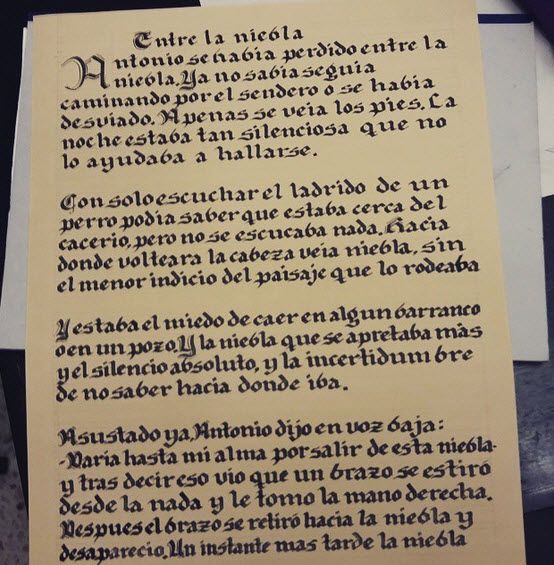 Entre la niebla
Antonio se había perdido entre la
niebla. Ya no sabia seguia
caminando por el sendero o se habia
desviado. Apenas se veia los pies. La
noche estaba tan silenciosa que no
lo ayudaba a hallarse.
Con solo escuchar el ladrido de un
perro podia saber que estaba cerca del
cacerio, pero no se escucaba nada. Hacia
donde volteara la cabeza veia niebla, sin
el menor indicio del paisaje que lo rodeaba
Y estaba el miedo de caer en algun barranco
o en un pozo. Y la niebla que se apretaba màs
y el silencio absoluto, y la incertidumbre
de no saber hacia donde iba.
Asustado ya, Antonio dijo en voz baja:
-Daria hasta mi alma por salir de esta niebla-
y tras decir eso vio que un brazo se estiró
desde la nada y le tomo la mano derecha.
Despues el brazo se retiró hacia la niebla y
desaparecio. Un instante mas tarde la niebla